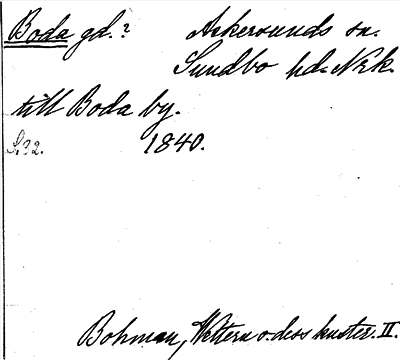 Boda gd.? Askersunds sn.
Sundbo hd. Nrk.
till Boda by.
S. 32. 1840.
Bohman, Wettern o. dess kuster. II.